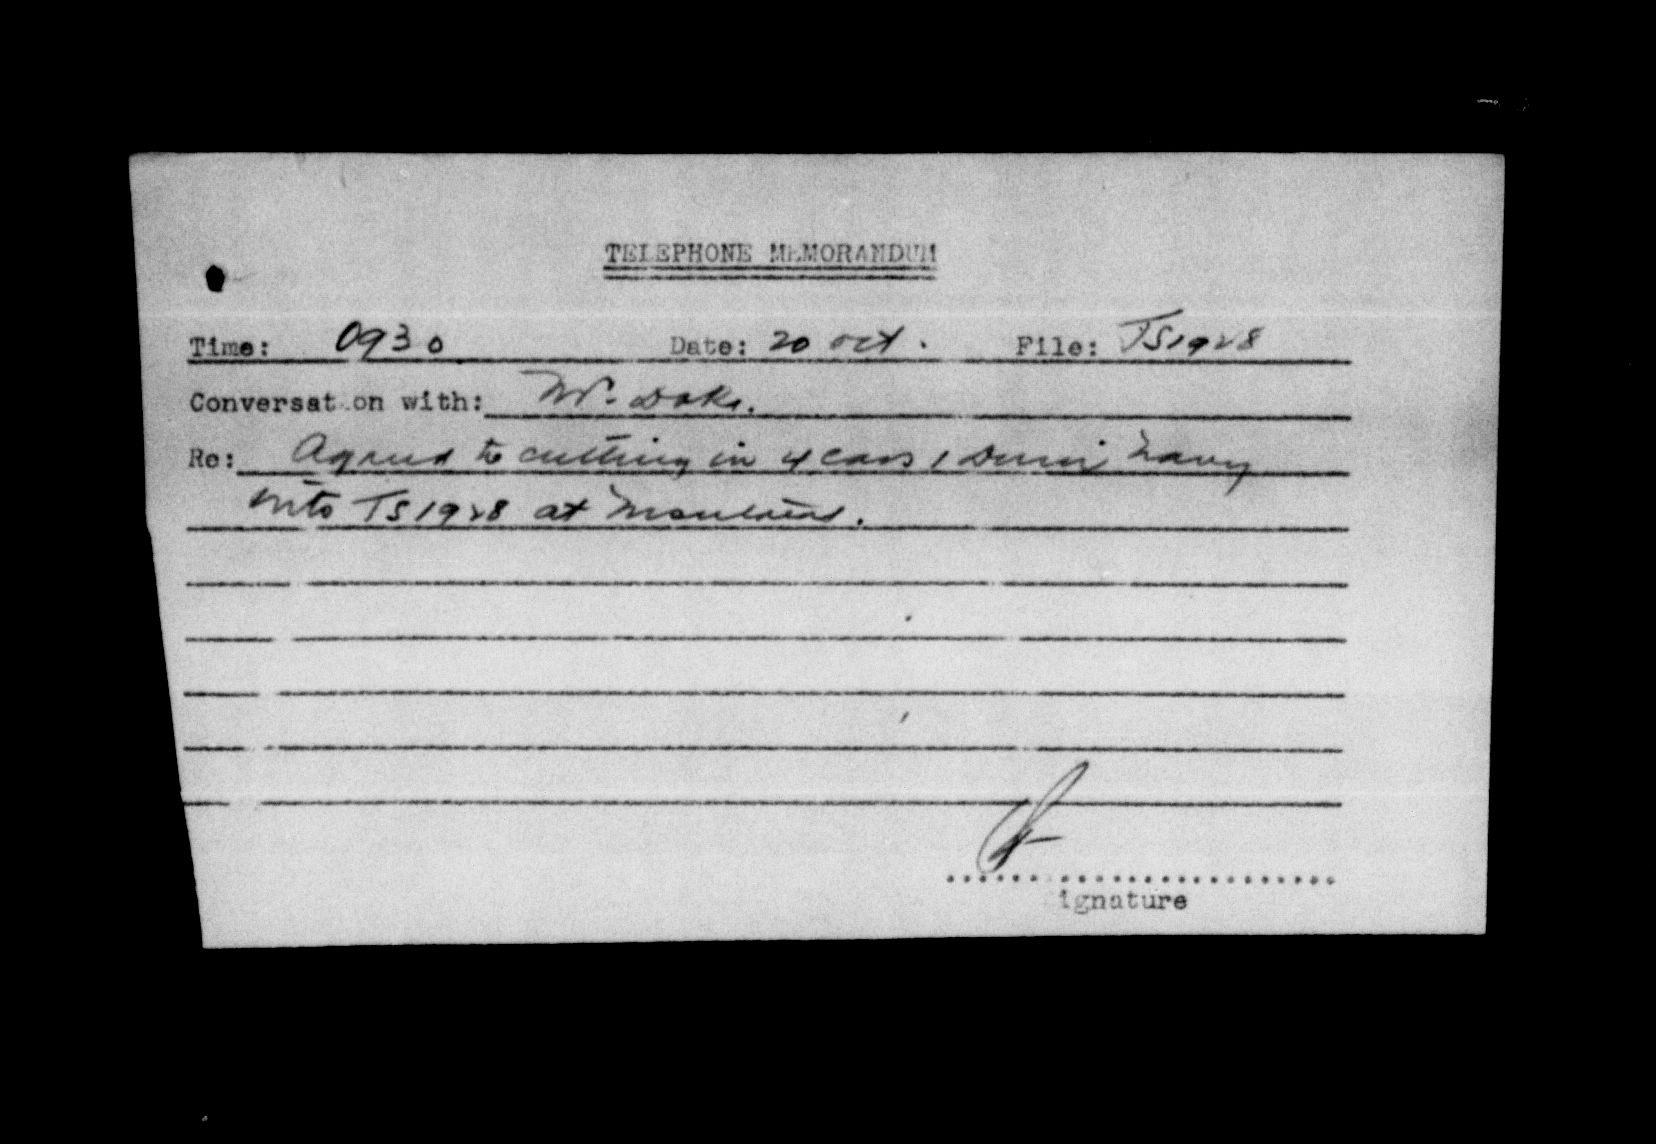 TELEPHONE MEMORANDUM
Time: 0930 Date: 20 Oct. File: TS1928
Conversat on with: Mr.
Re: Agreed to cutting in 4 cars 1 Navy
into TS1928 at
ignature